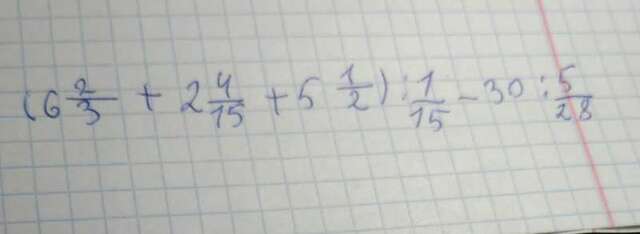 (6 2/3 + 2 4/15 + 5 1/2) : 1/15 - 30 : 5/28